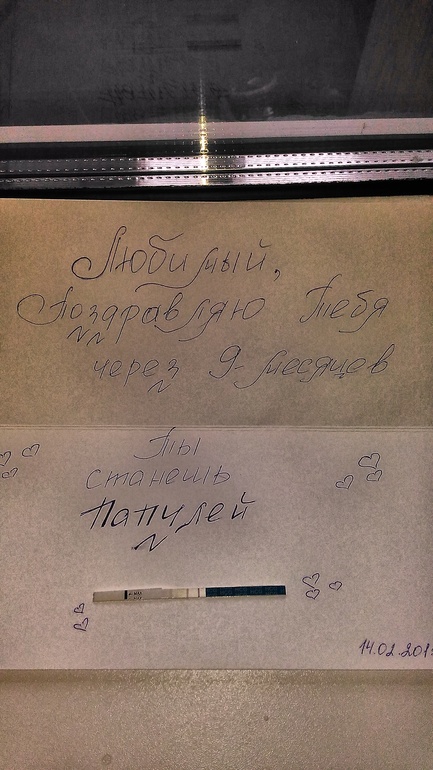 Любимый,
Поздравляю Тебя
через 9-месяцев
Ты
станешь
Папулей
14.02.201